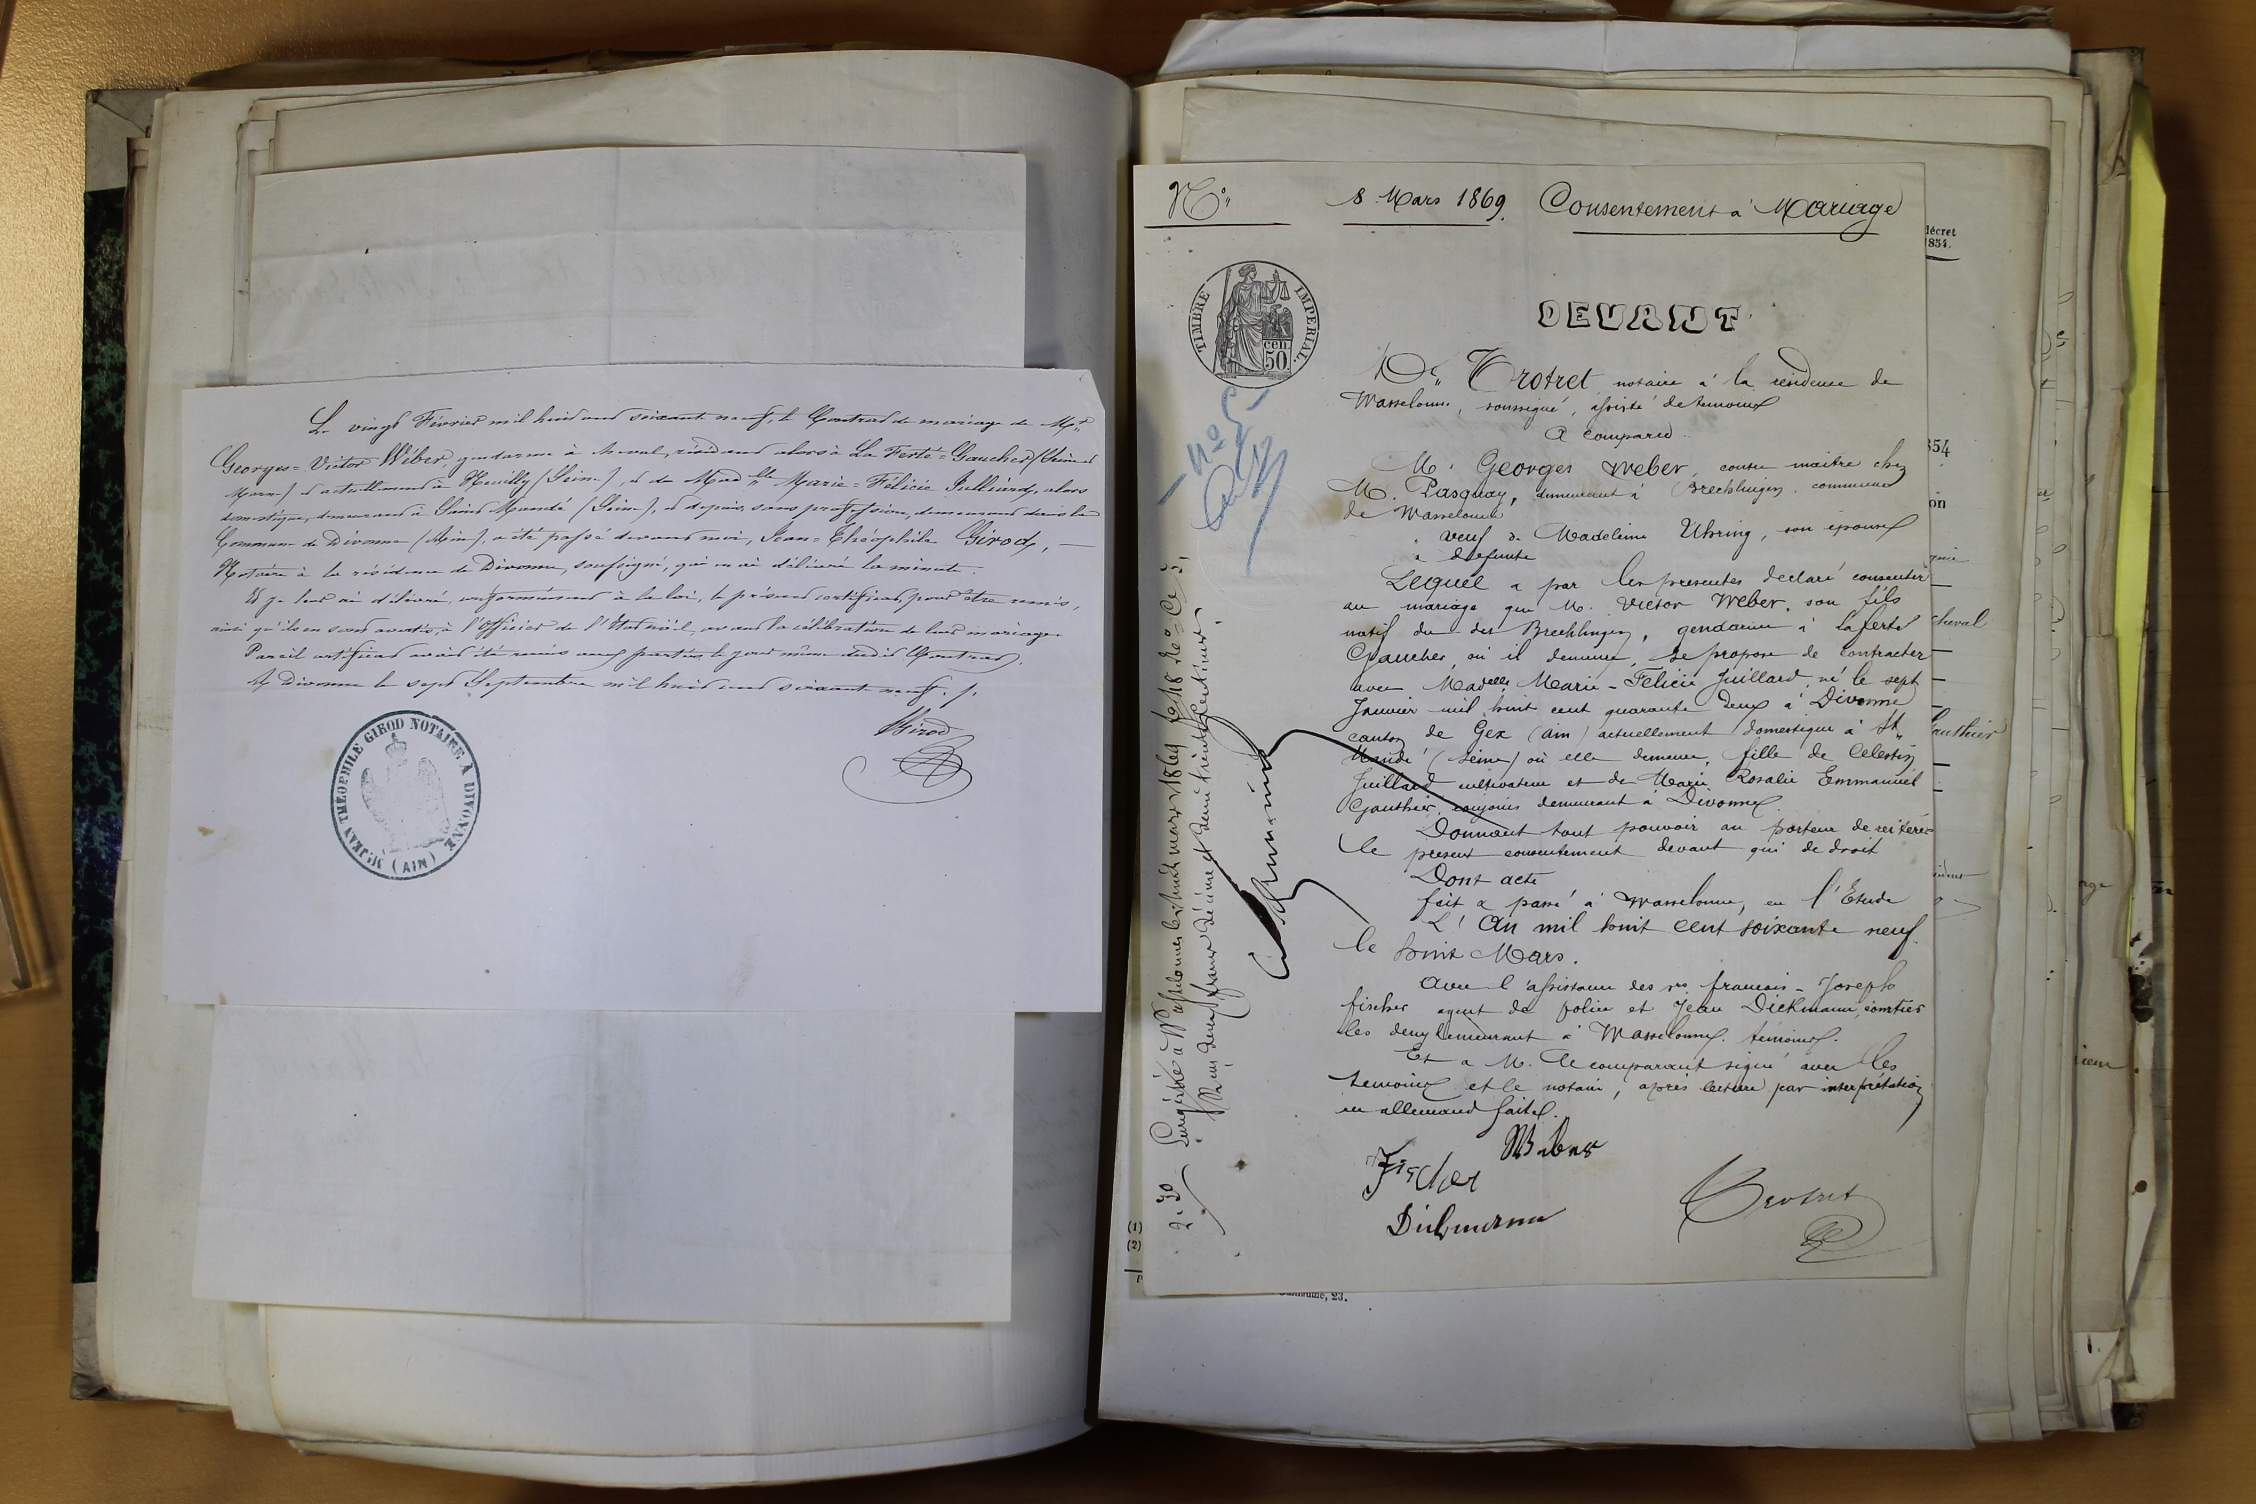 Le vingt Février mil huit cent soixante neuf, le Contrat de mariage de Mr.
Georges=Victor Wéber, gendarme à cheval, résidant alors à La Ferté=Gaucher (Seine et
Marne) et actuellement à Neuilly (Seine), et de Madlle. Marie=Félicie Julliard, alors
domestique, demeurant à Saint Mandé (Seine), et depuis sans profession, demeurant dans la
Commune de Divonne (Ain), a été passé devant moi, Jean=Théophile Girod, —
Notaire à la résidence de Divonne, soussigné, qui en ai délivré la minute.
Et je leur ai délivré, conformément à la loi, le présent certificat, pour être remis,
ainsi qu'ils en sont avertis, à l'Officier de l'État civil, avant la célébration de leur mariage.
Pareil certificat avait été remis aux parties le jour même dudit Contrat.
A Divonne le sept Septembre mil huit cent soixante neuf.
Girod
Mr. JEAN THÉOPHILE GIROD NOTAIRE À DIVONNE
(AIN)
No.
8 Mars 1869. Consentement à Mariage
TIMBRE IMPERIAL.
50 cen
No 5
DEVANT
Me. Trotret notaire à la résidence de
Wasselonne, soussigné, assisté de témoins
A comparu
M. Georges Weber, contre maître chez
M. Pasquay, demeurant à Brechlingen, commune
de Wasselonne
veuf de Madeleine Uhring, son épouse
défunte
Lequel a par les présentes déclaré consentir
au mariage que M. Victor Weber, son fils
natif du dit Brechlingen, gendarme à Laferté
Gaucher, où il demeure, se propose de contracter
avec Madelle Marie-Félicie Juillard, né le sept
Janvier mil huit cent quarante deux à Divonne
canton de Gex (ain) actuellement domestique à St.
Mandé (Seine) où elle demeure, fille de Célestin
Juillard cultivateur et de Marie Rosalie Emmanuel
Gauthier, conjoints demeurant à Divonne.
Donnant tout pouvoir au porteur de réitérer
le présent consentement devant qui de droit
Dont acte
fait & passé à Wasselonne, en l'Etude
L'An mil huit cent soixante neuf
le huit Mars.
Avec l'assistance des srs françois-Joseph
fischer agent de police et Jean Dickmann, courtier
les deux demeurant à Wasselonne. témoins.
Et a M. le comparant signé avec les
témoins et le notaire, après lecture par interprétation
en allemand faite.
Weber
Fischer
Dickmann
Trotret
Enregistré à Wasselonne le huit mars 1869 fo 18 Ro Ce 5,
Reçu deux francs décime et demi trente centimes.
2.30
décret
1854.
854
on
cheval
Gauthier
(2)